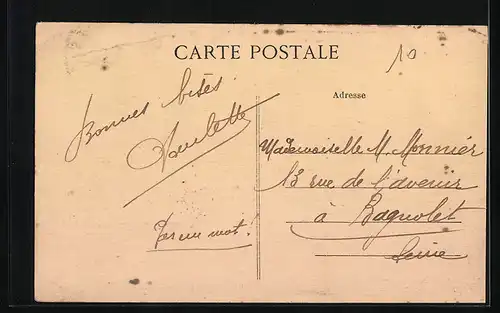 CARTE POSTALE
10
Adresse
Bonnes bises
Paulette
un mot!
Mademoiselle M. Monnier
13 rue de l'avenir
à Bagnolet
Seine